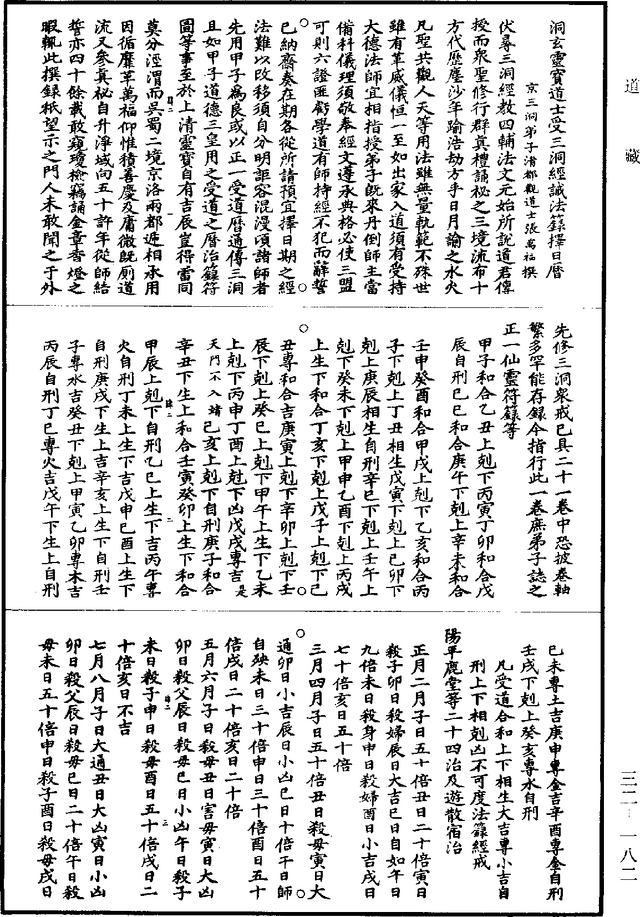 道藏
三二-一八二
洞玄靈寶道士受三洞經誡法籙擇日曆
京三洞弟子清都觀道士張萬福撰
伏尋三洞經教四輔法文元始所說道君傳
授而眾聖修行群真禮誦祕之三境流布十
方代歷塵沙年踰浩劫方乎日月諭之水火
凡聖共觀人天等用法雖無量軌範不殊世
雖有革威儀恒一至如出家入道須有受持
大德法師宜相指授弟子既來丹倒師主當
備科儀理須敬奉經文遵承典格必使三盟
可則六證匪虧學道有師持經不犯而辭誓
已納齋奏在期各從所請預宜擇日期之經
法難以改移須自分明詎容混漫頃諸師者
先用甲子為良或以正一受道曆通傳三洞
且如甲子道德三皇用之受道之曆治籙符
圖等事至於上清靈寶自有吉辰豈得雷同
莫分涇渭而吳蜀二境京洛兩都遞相承用
因循靡革萬福仰惟積善慶及庸微既廁道
流又參真祕自升淨域向五十許年從師結
誓亦四十餘載敢窺瓊檢竊誦金章香燈之
暇輒此撰錄秖望示之門人未敢聞之于外
先修三洞眾戒已具二十一卷中恐披卷軸
繁多罕能存錄今指行此一卷庶弟子誌之
正一仙靈符籙等
甲子和合乙丑上剋下丙寅丁卯和合戊
辰自刑己巳和合庚午下剋上辛未和合
壬申癸酉和合甲戌上剋下乙亥和合丙
子下剋上丁丑相生戊寅下剋上己卯下
剋上庚辰相生自刑辛巳下剋上壬午上
剋下癸未下剋上甲申乙酉下剋上丙戌
上生下和合丁亥下剋上戊子上剋下己
丑專和合吉庚寅上剋下辛卯上剋下壬
辰下剋上癸巳上剋下甲午上生下乙未
上剋下丙申丁酉上剋下凶戊戌專吉是
天門不入靖己亥上剋下自刑庚子和合
辛丑下生上和合壬寅癸卯上生下和合
甲辰上剋下自刑乙巳上生下吉丙午專
火自刑丁未上生下吉戊申己酉上生下
自刑庚戌下生上吉辛亥上生下自刑壬
子專水吉癸丑下剋上甲寅乙卯專木吉
丙辰自刑丁巳專火吉戊午下生上自刑
己未專土吉庚申專金吉辛酉專金自刑
壬戌下剋上癸亥專水自刑
凡受道合和上下相生大吉專小吉自
刑上下相剋凶不可度法籙經戒
陽平鹿堂等二十四治及遊散宿治
正月二月子日五十倍丑日二十倍寅日
殺子卯日殺婦辰日大吉巳日自如午日
九倍未日殺身申日殺婦酉日小吉戌日
七十倍亥日五十倍
三月四月子日五十倍丑日殺母寅日大
通卯日小吉辰日小凶巳日十倍午日師
自殃未日三十倍申日三十倍酉日五十
倍戌日二十倍亥日二十倍
五月六月子日殺母丑日害母寅日大凶
卯日殺父辰日殺母巳日小凶午日殺子
未日殺子申日殺母酉日五十倍戌日二
十倍亥日不吉
七月八月子日大通丑日大凶寅日小凶
卯日殺父辰日殺母巳日二十倍午日殺
母未日五十倍申日殺子酉日殺母戌日